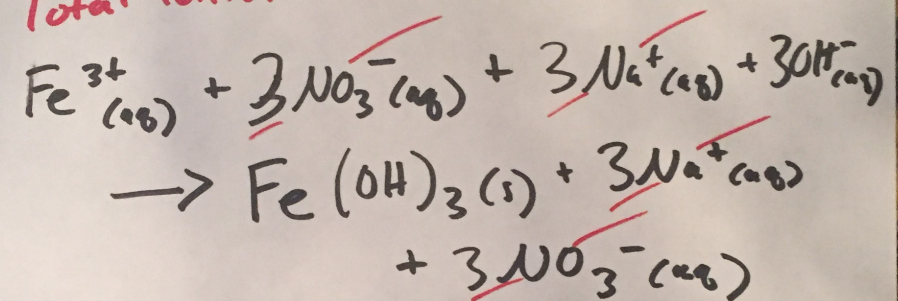 Total
Fe³⁺(aq) + 3NO₃⁻(aq) + 3Na⁺(aq) + 3OH⁻(aq)
→ Fe(OH)₃(s) + 3Na⁺(aq)
+ 3NO₃⁻(aq)